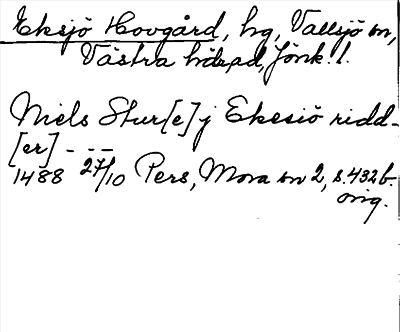 Eksjö Hovgård, hg, Vallsjö sn,
Västra hd, Jönk. l.
Niels Stur[e] j Ekesiö ridd-
[er] - - -
1488 27/10 Pers, Mora sn 2, s. 432 b.
orig.